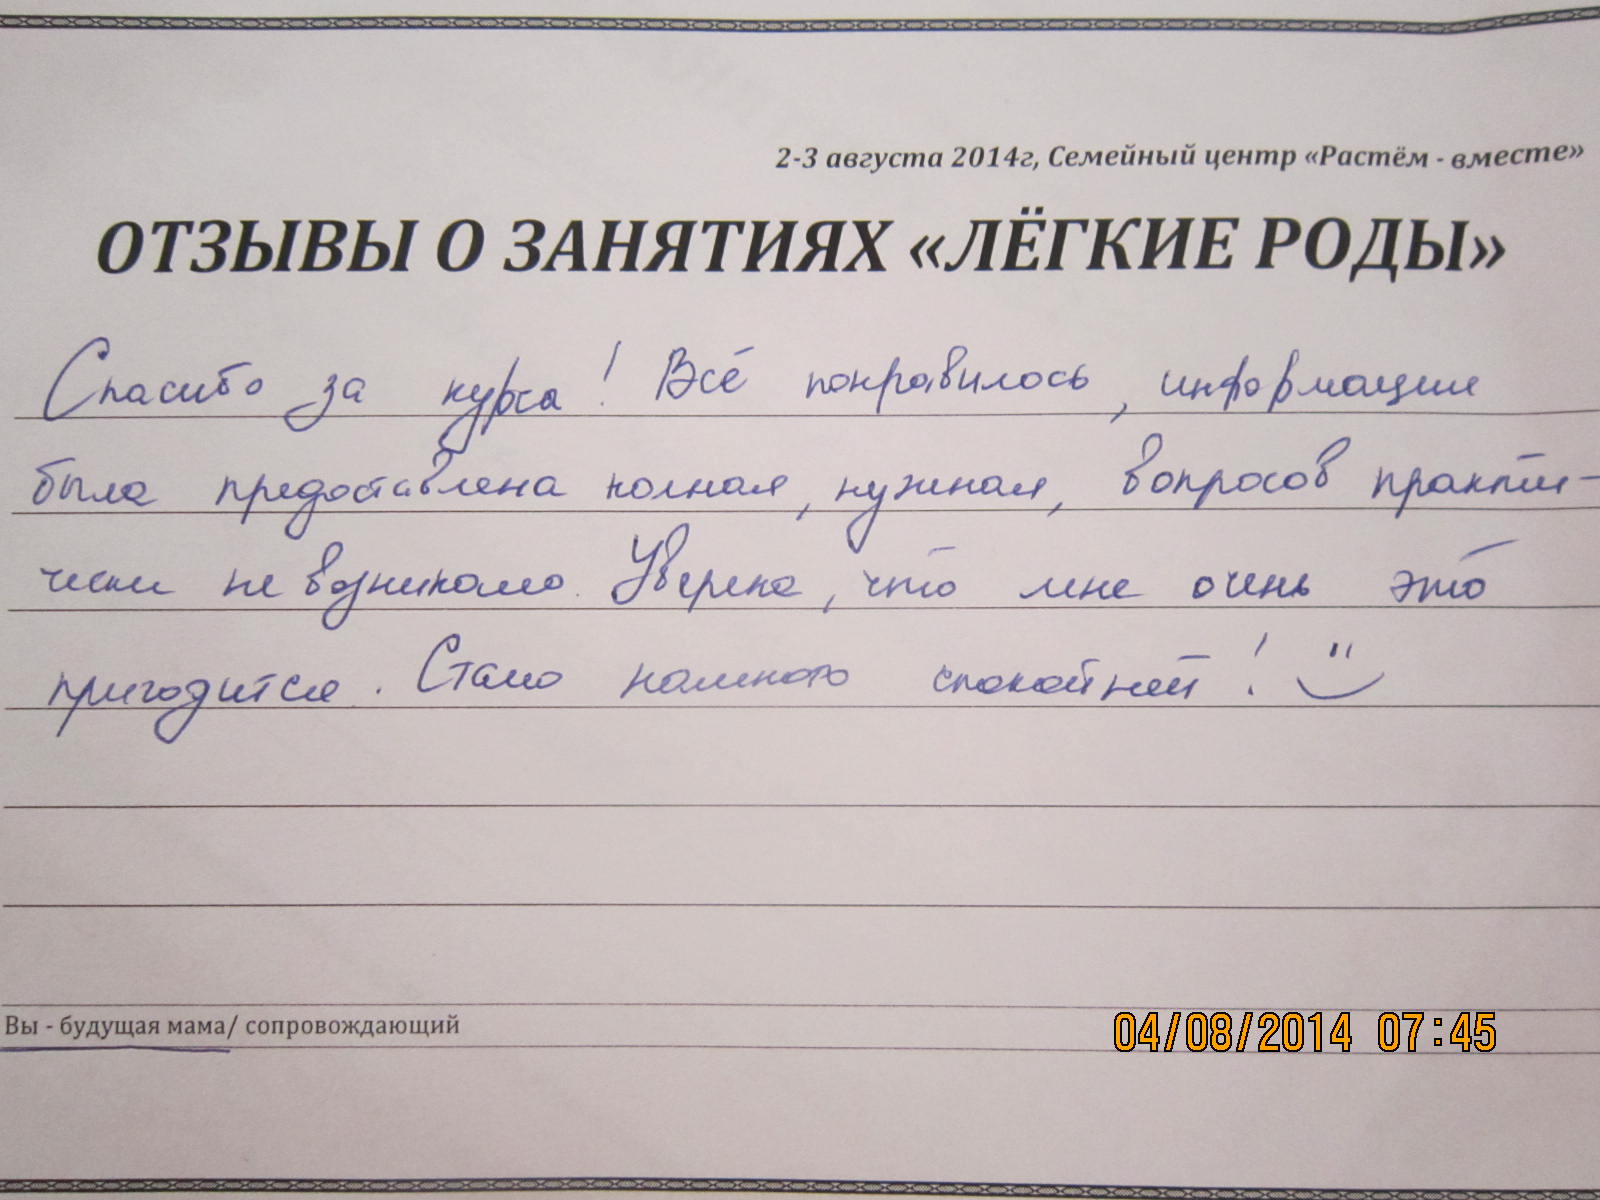 2-3 августа 2014г, Семейный центр «Растём - вместе»
ОТЗЫВЫ О ЗАНЯТИЯХ «ЛЁГКИЕ РОДЫ»
Спасибо за курсы! Всё понравилось, информация
была предоставлена полная, нужная, вопросов практи-
чески не возникало. Уверена, что мне очень это
пригодится. Стало намного спокойней! ‿
Вы - будущая мама/ сопровождающий
04/08/2014 07:45